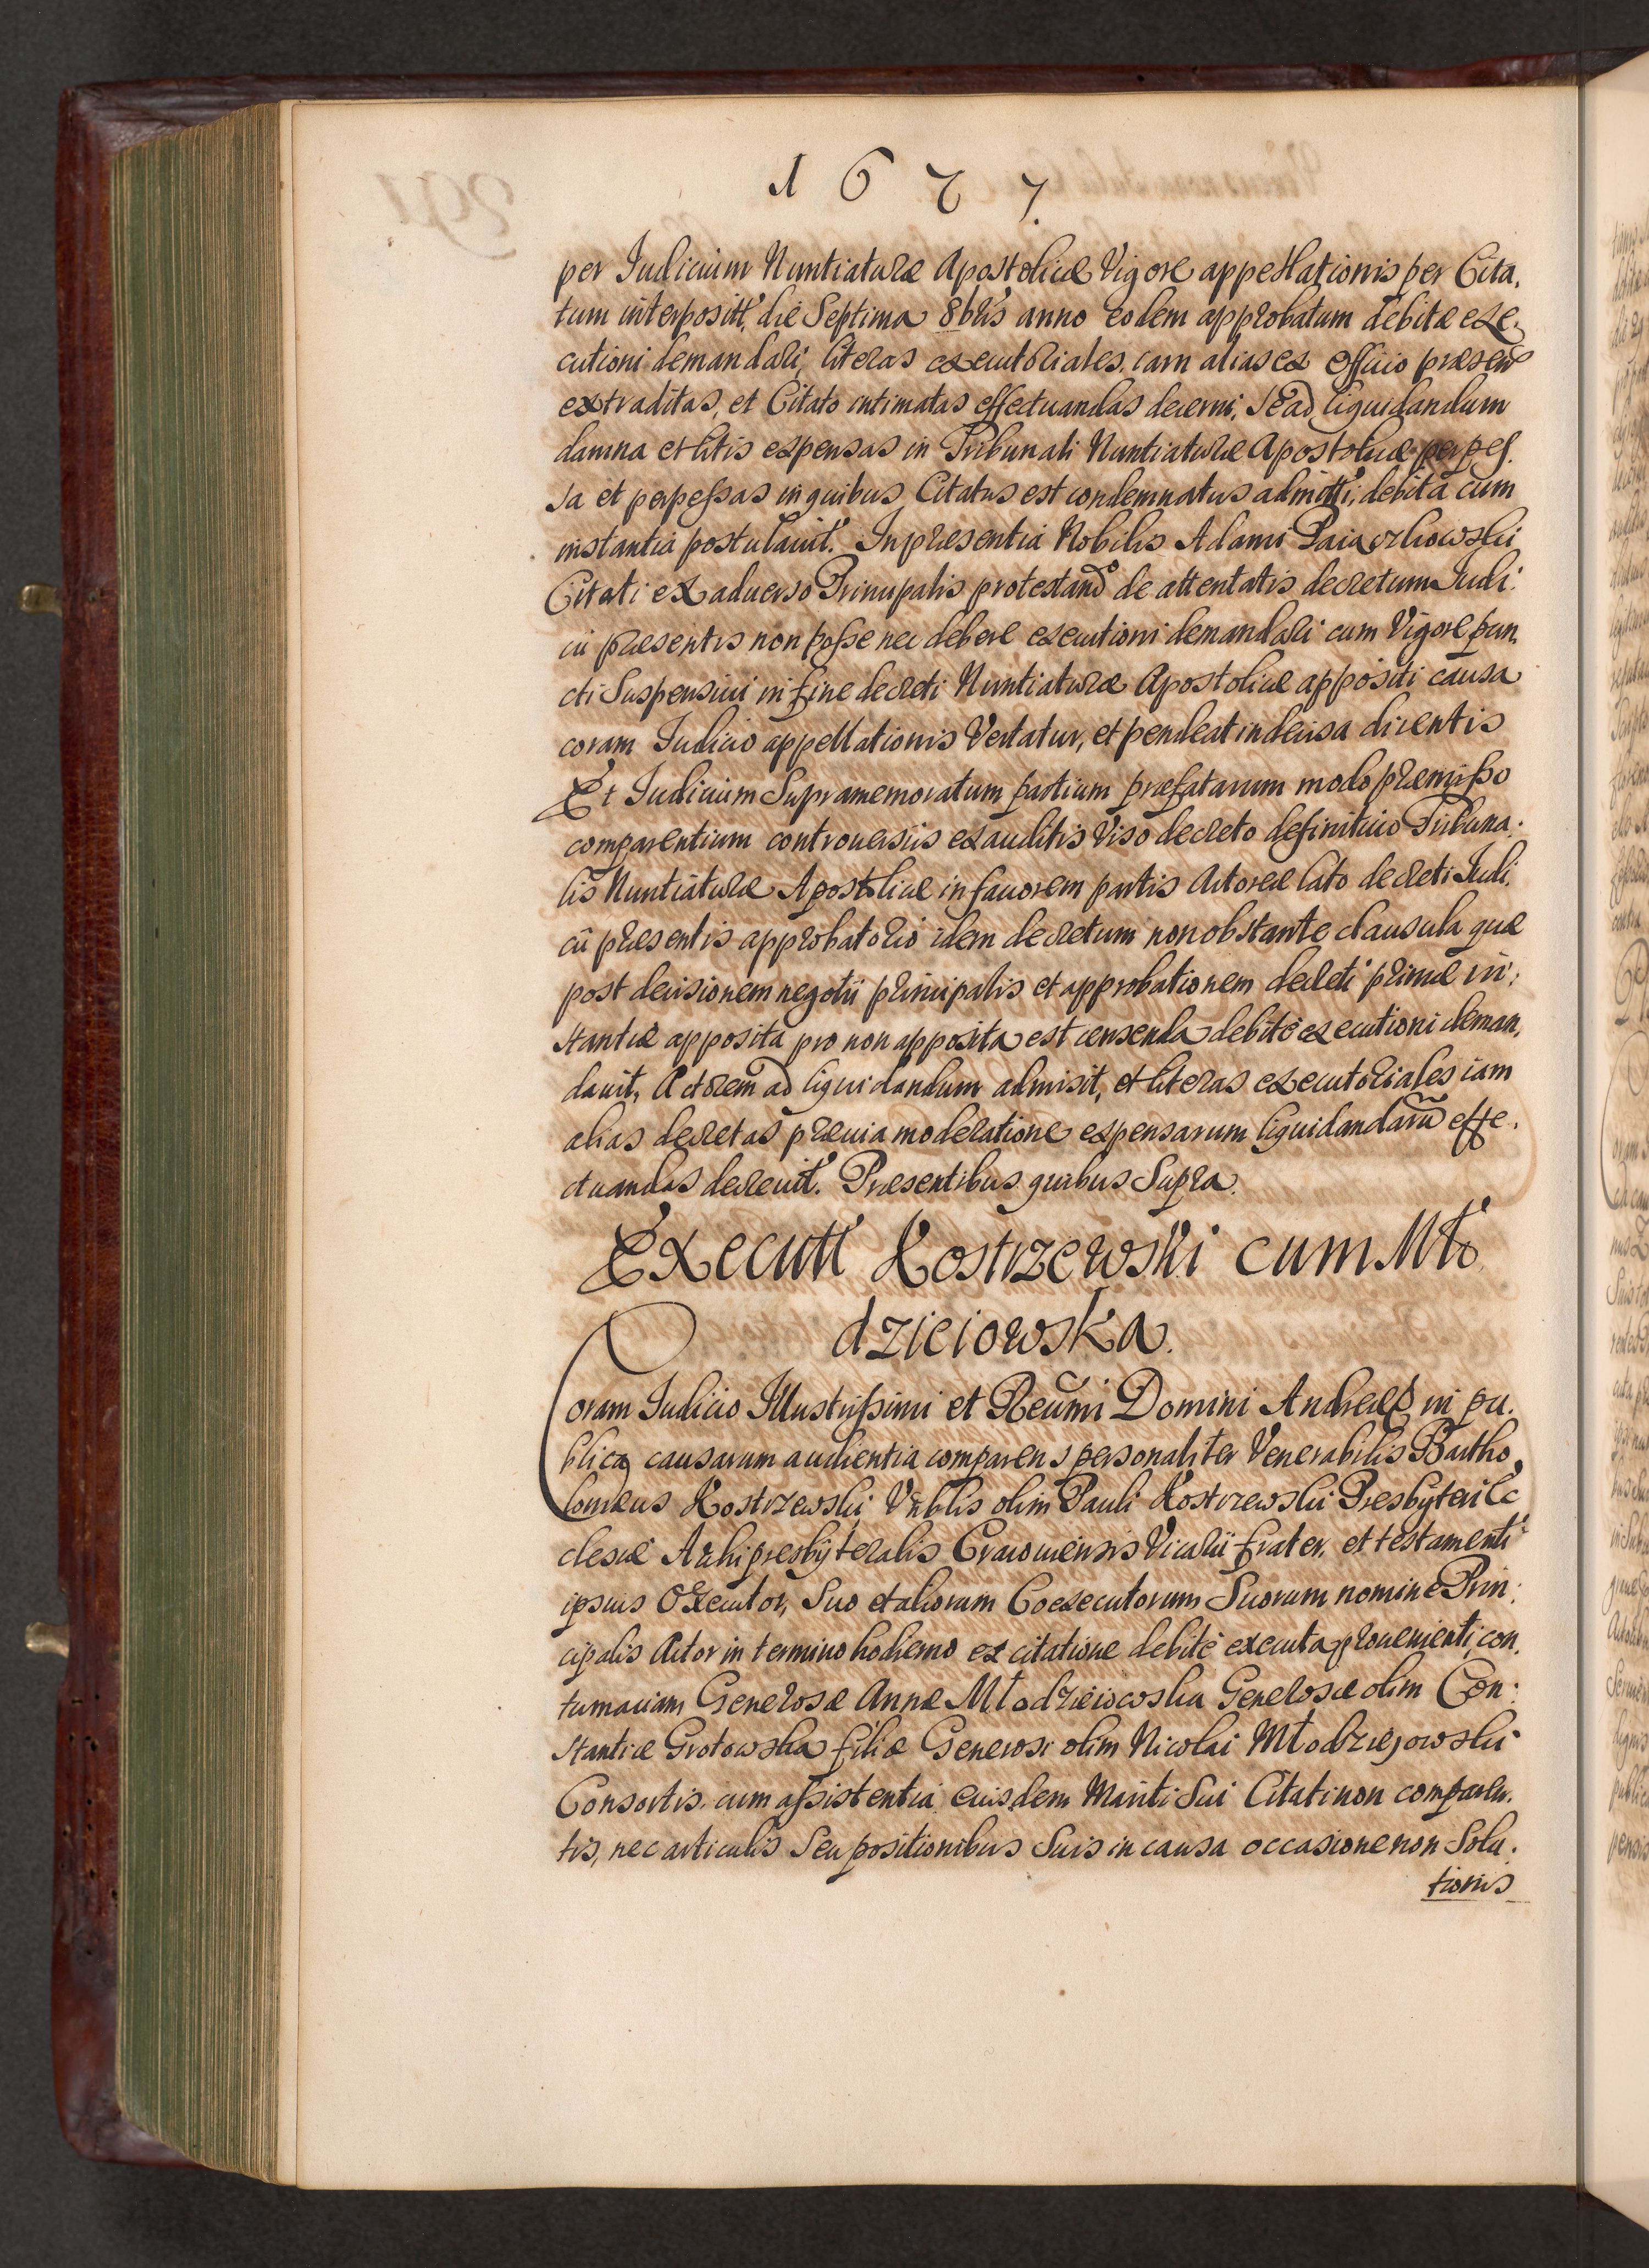 1677.
per Iudicium Nuntiaturæ Apostolicæ Vigore appellationis per Cita,
tum interposit, die Septima 8bris anno eodem approbatum debitæ exe,
cutioni demandari, literas executoriales iam alias ex officio præsen
extraditas, et Citato intimatas effectuandas decerni, se ad liquidandum
damna et litis expensas in Tribunali Nuntiaturæ Apostolicæ perpes.
sa et perpessas in quibus Citatus est condemnatus admitti, debita cum
instantia postulauit. In præsentia Nobilis Adami Paiaczkowski
Citati ex aduerso Principalis protestando de attentatis decretum Iudi:
cii præsentis non posse nec debere executioni demandari cum Vigore pun,
cti Suspensiui in fine decreti Nuntiaturæ Apostolicæ appositi causa
coram Iudicio appellationis Vertatur, et pendeat indecisa dicentis
Et Iudicium Supramemoratum partium præfatarum modo præmisso
comparentium controuersiis exauditis Viso decreto definitiuo Tribuna.
lis Nuntiaturæ Apostolicæ in fauorem partis Actoreæ lato decreti Iudi.
cii præsentis approbatorio idem decretum non obstante clausula quæ
post decisionem negotii principalis et approbationem decreti primæ in:
stantiæ apposita pro non apposita est censenda debite executioni deman,
dauit, Actorem ad liquidandum admisit, et literas executoriales iam
alias decretas præuia moderatione expensarum liquidandarum effe.
ctuandas decreuit. Præsentibus quibus Supra.
Executt Kostrzewski cum Mło
dzieiowska.
Coram Iudicio Illustrissimi et Reverndmi Domini Andreæ in pu.
blica causarum audientia comparens personaliter Venerabilis Bartho,
lomæus Kostrzewski Vnblis olim Pauli Kostrzewski Presbyteri Ec
clesiæ Archipresbyteralis Cracouiensis Vicarii frater, et testamenti
ipsius Executor, Suo et aliorum Coexecutorum Suorum nomine Prin:
cipalis Actor in termino hodierno ex citatione debite executa proueniente, con,
tumaciam Generosæ Annæ Młodzieiowska Generosæ olim Con:
stantiæ Grotowska filiæ Generosi olim Nicolai Młodziejowski
Consortis, cum assistentia eiusdem Mariti Sui Citati non comparen.
tis, nec articulis Seu positionibus Suis in causa occasione non Solu.
tionis